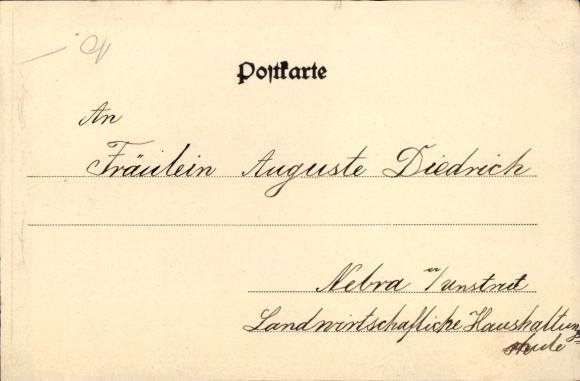 Postkarte
An
Fräulein Auguste Diedrich
Nebra a/Unstrut
Landwirtschaftliche Haushaltungs
schule